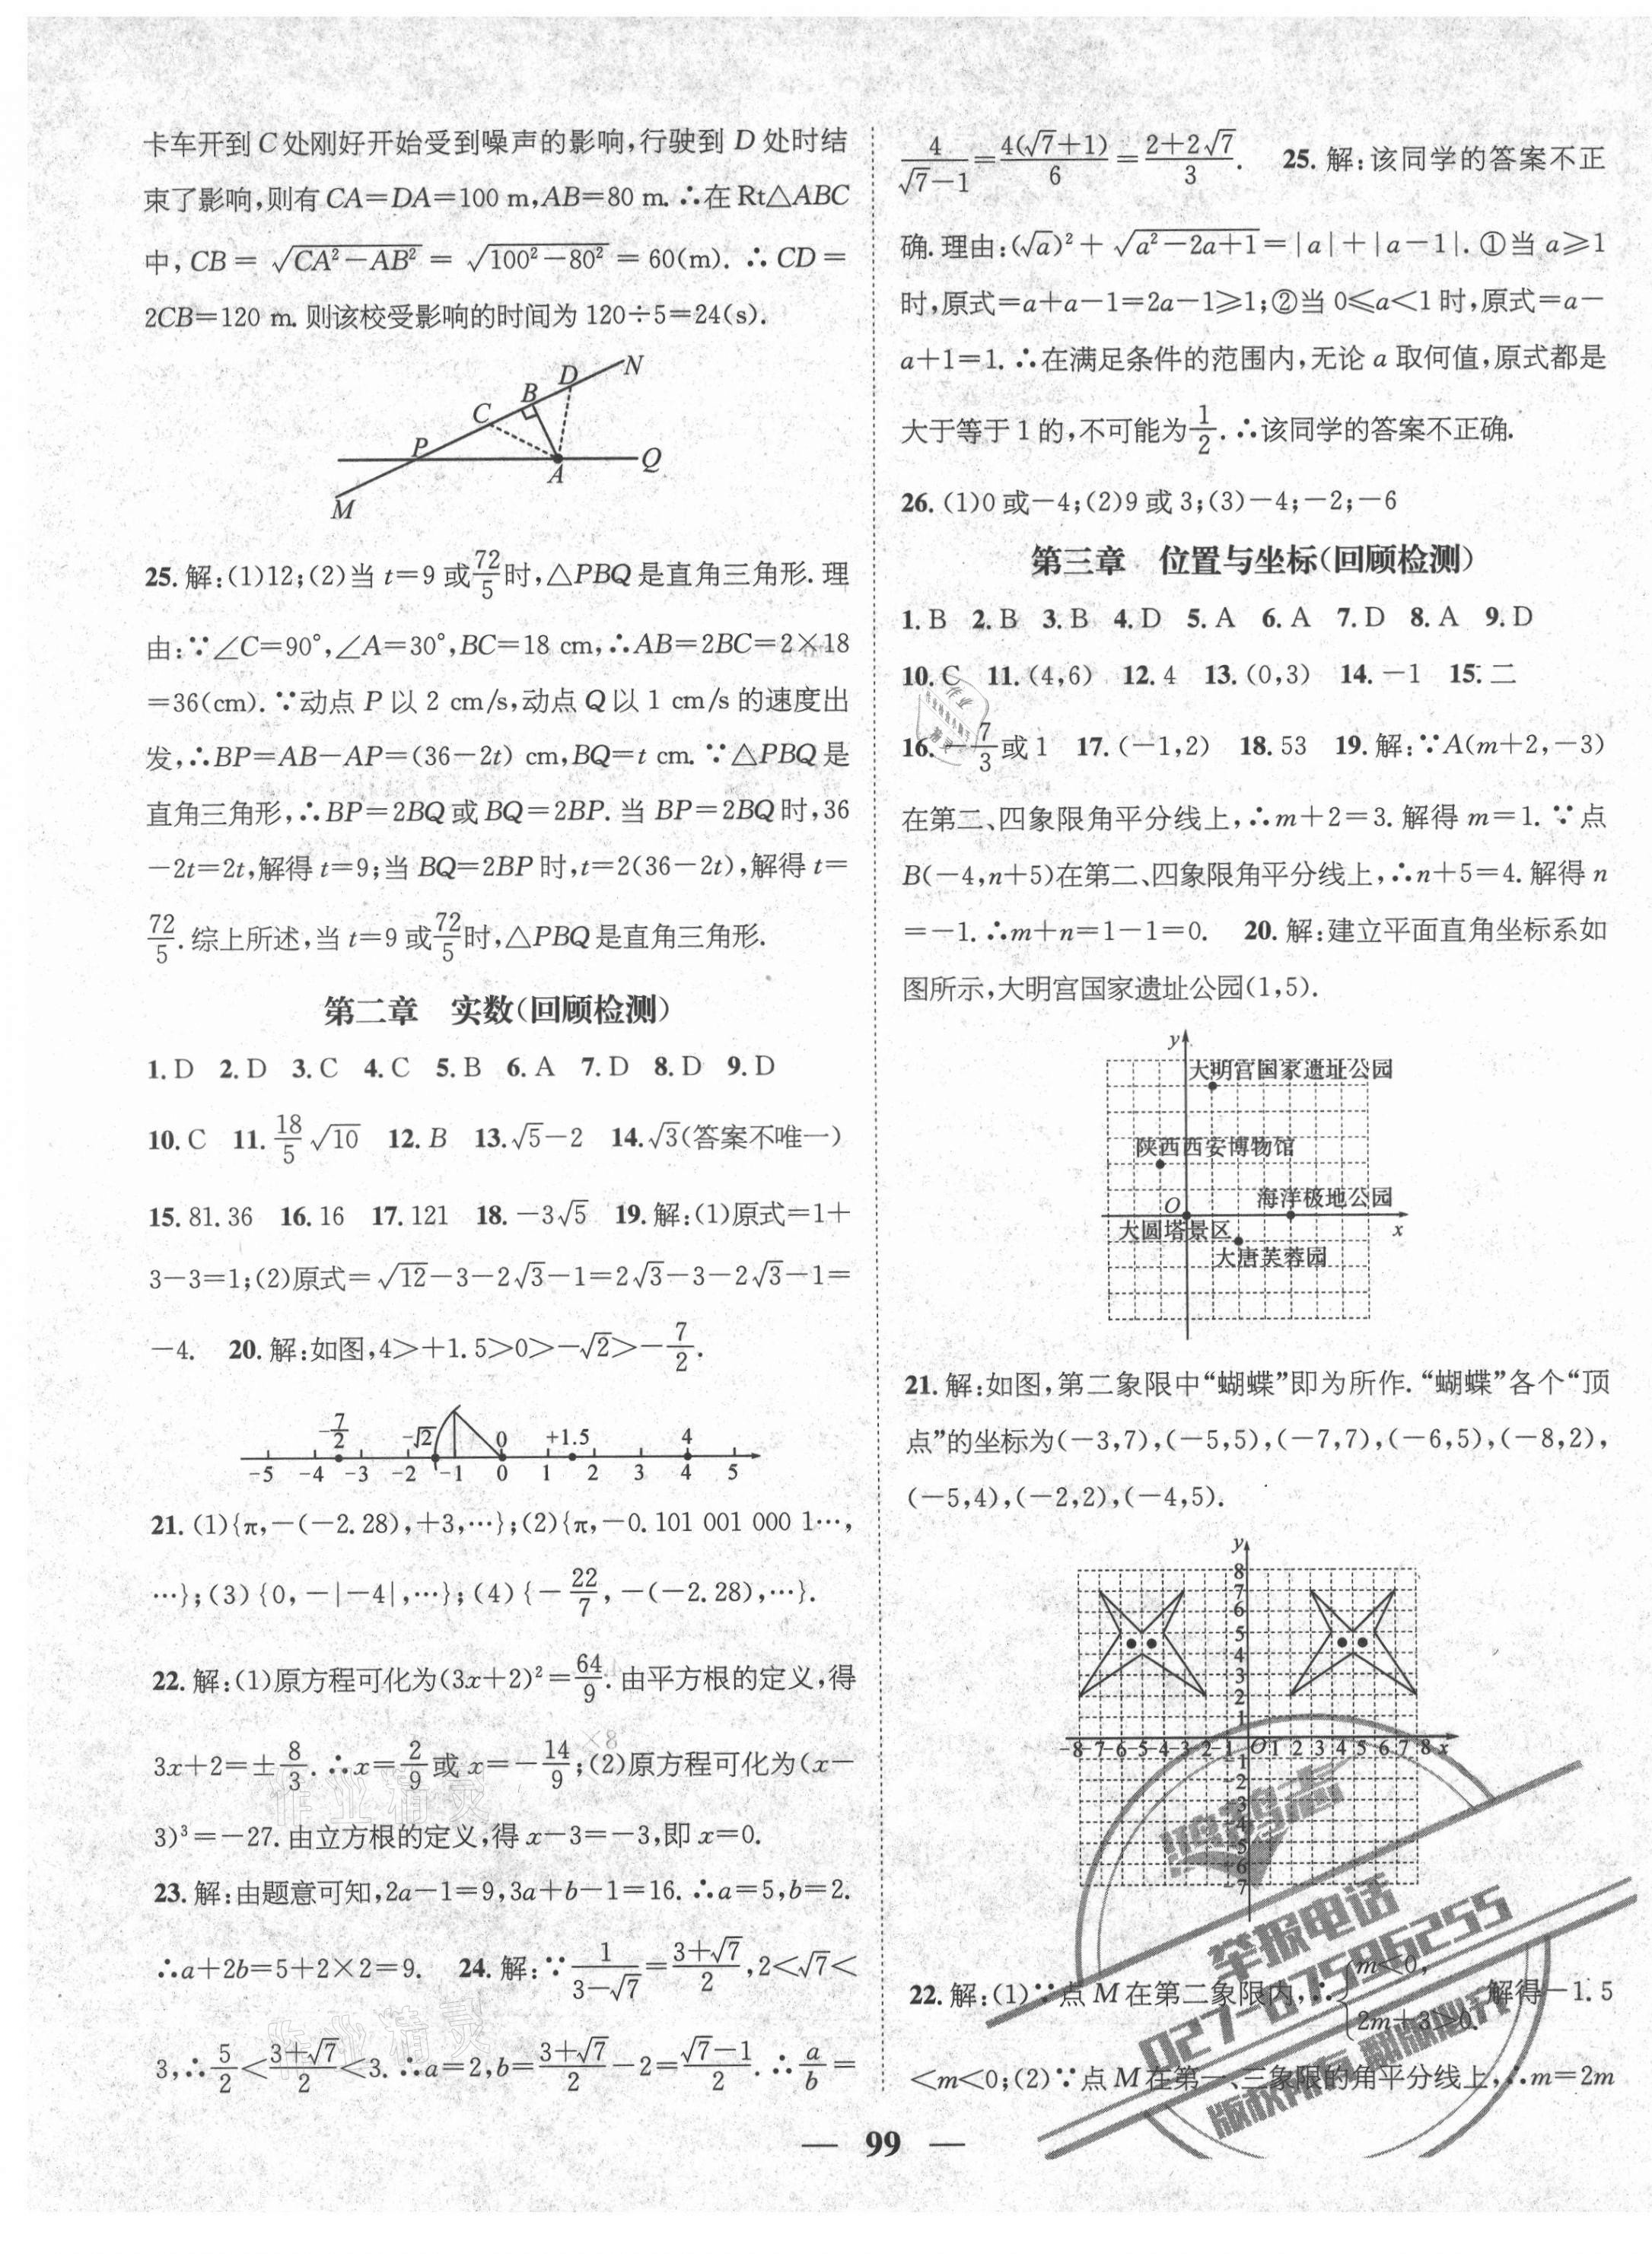 卡车开到 C 处刚好开始受到噪声的影响,行驶到 D 处时结
束了影响,则有 CA=DA=100 m,AB=80 m. ∴在 Rt△ABC
中, CB = √(CA²-AB²) = √(100²-80²) = 60(m). ∴ CD =
2CB=120 m. 则该校受影响的时间为 120÷5=24(s).
N
D
B
C
P
A
Q
M
25. 解:(1)12;(2)当 t=9 或 72/5 时,△PBQ 是直角三角形. 理
由:∵∠C=90°,∠A=30°,BC=18 cm,∴AB=2BC=2×18
=36(cm). ∵动点 P 以 2 cm/s,动点 Q 以 1 cm/s 的速度出
发,∴BP=AB-AP=(36-2t) cm,BQ=t cm. ∵△PBQ 是
直角三角形,∴BP=2BQ 或 BQ=2BP. 当 BP=2BQ 时,36
-2t=2t,解得 t=9;当 BQ=2BP 时,t=2(36-2t),解得 t=
72/5. 综上所述,当 t=9 或 72/5 时,△PBQ 是直角三角形.
第二章 实数(回顾检测)
1. D 2. D 3. C 4. C 5. B 6. A 7. D 8. D 9. D
10. C 11. 18/5 √10 12. B 13. √5-2 14. √3(答案不唯一)
15. 81. 36 16. 16 17. 121 18. -3√5 19. 解:(1)原式=1+
3-3=1;(2)原式=√12-3-2√3-1=2√3-3-2√3-1=
-4. 20. 解:如图,4>+1. 5>0>-√2>-7/2.
-7/2 -√2 0 +1.5 4
-5 -4 -3 -2 -1 0 1 2 3 4 5
21. (1){π,-(-2. 28),+3,…};(2){π,-0. 101 001 000 1…,
…};(3){0,-|-4|,…};(4){-22/7,-(-2. 28),…}.
22. 解:(1)原方程可化为(3x+2)²=64/9. 由平方根的定义,得
3x+2=±8/3. ∴x=2/9 或 x=-14/9;(2)原方程可化为(x-
3)³=-27. 由立方根的定义,得 x-3=-3,即 x=0.
23. 解:由题意可知,2a-1=9,3a+b-1=16. ∴a=5,b=2.
∴a+2b=5+2×2=9. 24. 解:∵1/(3-√7)=(3+√7)/2,2<√7<
3,∴5/2<(3+√7)/2<3. ∴a=2,b=(3+√7)/2-2=(√7-1)/2. ∴a/b=
4/(√7-1)=4(√7+1)/6=(2+2√7)/3. 25. 解:该同学的答案不正
确. 理由:(√a)²+√(a²-2a+1)=|a|+|a-1|. ①当 a≥1
时,原式=a+a-1=2a-1≥1;②当 0≤a<1 时,原式=a-
a+1=1. ∴在满足条件的范围内,无论 a 取何值,原式都是
大于等于 1 的,不可能为1/2. ∴该同学的答案不正确.
26. (1)0 或-4;(2)9 或 3;(3)-4;-2;-6
第三章 位置与坐标(回顾检测)
1. B 2. B 3. B 4. D 5. A 6. A 7. D 8. A 9. D
10. C 11. (4,6) 12. 4 13. (0,3) 14. -1 15. 二
16. -7/3或 1 17. (-1,2) 18. 53 19. 解:∵A(m+2,-3)
在第二、四象限角平分线上,∴m+2=3. 解得 m=1. ∵点
B(-4,n+5)在第二、四象限角平分线上,∴n+5=4. 解得 n
=-1. ∴m+n=1-1=0. 20. 解:建立平面直角坐标系如
图所示,大明宫国家遗址公园(1,5).
y
大明宫国家遗址公园
陕西西安博物馆
O
海洋极地公园
x
大圆塔景区
大唐芙蓉园
21. 解:如图,第二象限中“蝴蝶”即为所作. “蝴蝶”各个“顶
点”的坐标为(-3,7),(-5,5),(-7,7),(-6,5),(-8,2),
(-5,4),(-2,2),(-4,5).
y
8
7
6
5
4
3
2
1
-8-7-6-5-4-3-2-1 O 1 2 3 4 5 6 7 8 x
-1
-2
-3
-4
-5
-6
-7
鸿鹄志
举报电话
027-87596255
版权所有 翻版必究
22. 解:(1)∵点 M 在第二象限内,∴{m<0, 2m+3>0. 解得-1. 5
<m<0;(2)∵点 M 在第一、三象限的角平分线上,∴m=2m
作业精灵
作业精灵
— 99 —